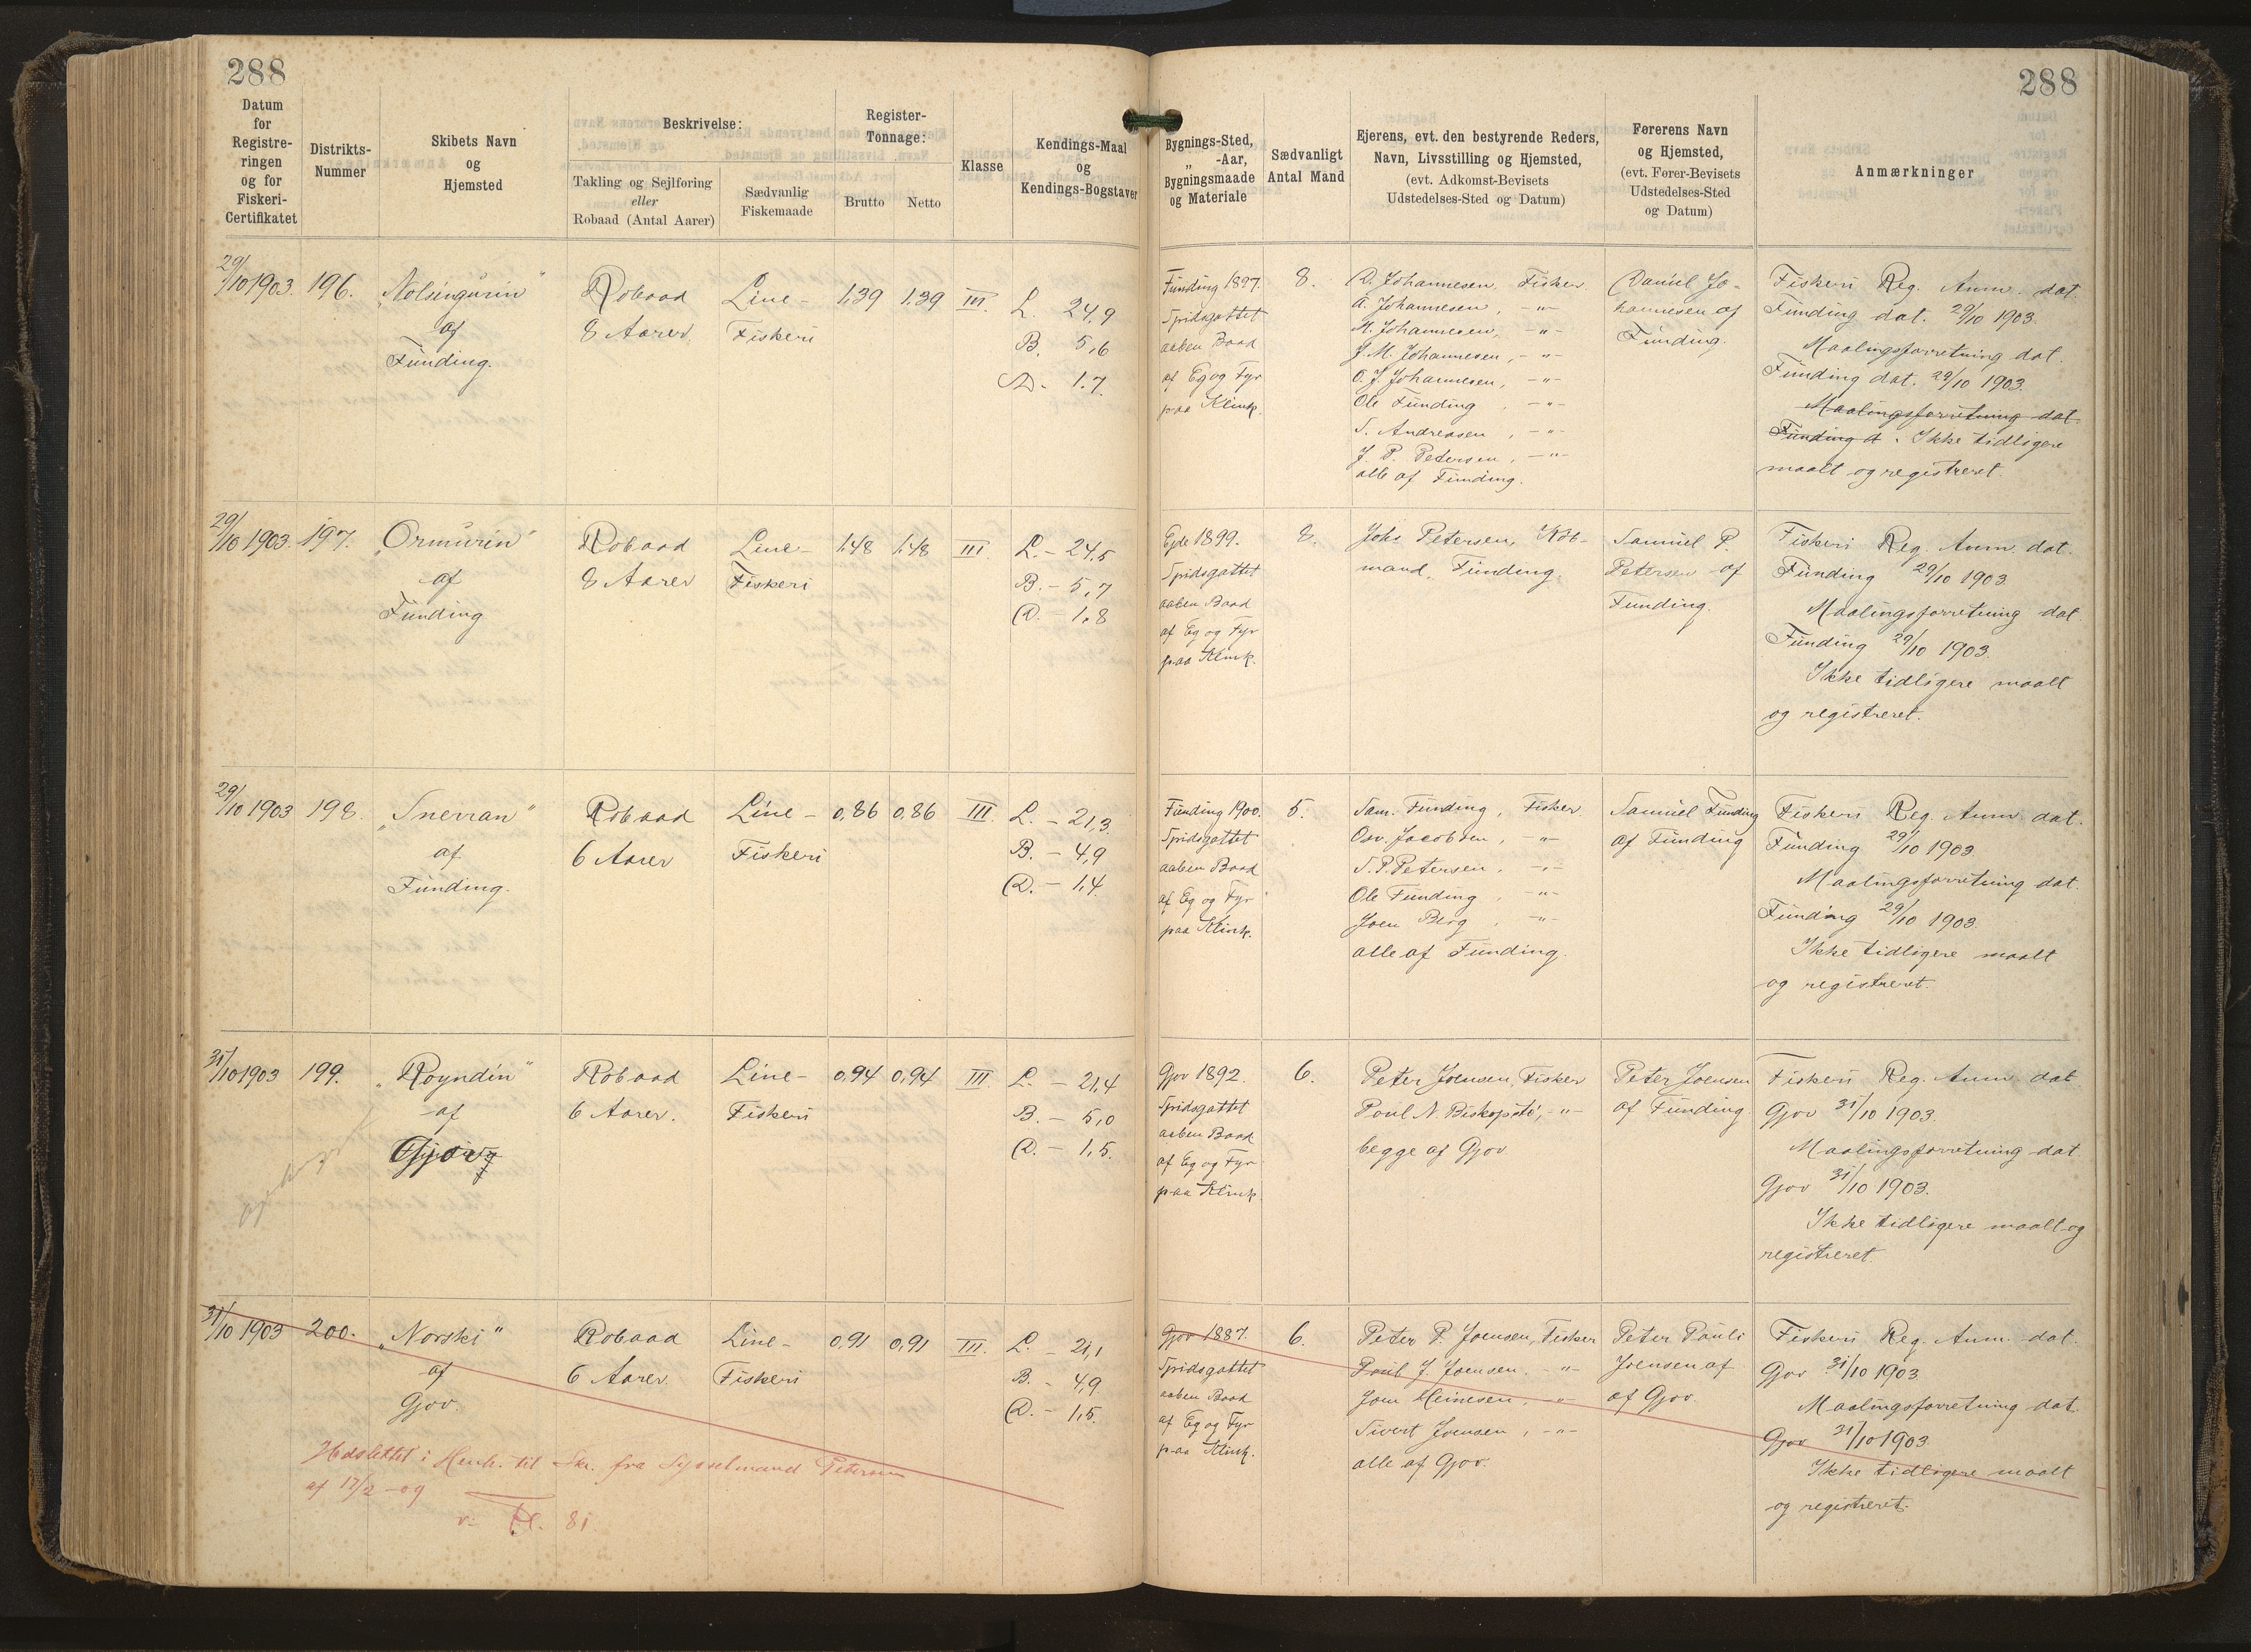 288
288
Datum
for
Registre-
ringen
og for
Fiskeri-
Certifikatet
Distrikts-
Nummer
Skibets Navn
og
Hjemsted
Beskrivelse:
Takling og Sejlføring
eller
Robaad (Antal Aarer)
Sædvanlig
Fiskemaade
Register-
Tonnage:
Brutto
Netto
Klasse
Kendings-Maal
og
Kendings-Bogstaver
Bygnings-Sted,
„ -Aar,
Bygningsmaade
og Materiale
Sædvanligt
Antal Mand
Ejerens, evt. den bestyrende Reders,
Navn, Livsstilling og Hjemsted,
(evt. Adkomst-Bevisets
Udstedelses-Sted og Datum)
Førerens Navn
og Hjemsted,
(evt. Fører-Bevisets
Udstedelses-Sted
og Datum)
Anmærkninger
29/10 1903. 196.
„Nolsingúrin“
af
Funding.
Robaad
8 Aarer.
Line-
Fiskeri
1,39 1,39 III.
L. 24,9
B. 5,6
D- 1.7.
Funding 1897.
Spidsgattet
aaben Baad
af Eg og Fyr
paa Klink.
8.
D. Johannesen, Fisker
A. Johannesen, -"-
M. Johannesen, -"-
J. M. Johannesen, -"-
O. J. Johannesen, -"-
Ole Funding, -"-
S. Andreasen, -"-
J. P. Petersen, -"-
alle af Funding.
Daniel Jo-
hannesen af
Funding.
Fiskeri Reg. Anm. dat.
Funding dat. 29/10 1903.
Maalingsforretning dat.
Funding dat. 29/10 1903.
Maalingsforretning dat.
Funding d. Ikke tidligere
maalt og registreret.
29/10 1903. 197.
„Ormúrin“
af
Funding.
Robaad
8 Aarer
Line-
Fiskeri
1,48 1,48 III
L. - 24,5
B. - 5,7
D. - 1,8
Ejde 1899.
Spidsgattet
aaben Baad
af Eg og Fyr
paa Klink.
8.
Johs Petersen, Køb-
mand, Funding.
Samuel P.
Petersen af
Funding.
Fiskeri Reg. Anm. dat.
Funding 29/10 1903.
Maalingsforretning dat
Funding 29/10 1903.
Ikke tidligere maalt
og registreret.
29/10 1903 198.
„Snerran“
af
Funding.
Robaad
6 Aarer
Line-
Fiskeri
0,86 0,86 III.
L. - 21,3.
B. - 4,9
D. - 1,4.
Funding 1900.
Spidsgattet
aaben Baad
af Eg og Fyr
paa Klink.
5.
Sam. Funding, Fisker
Osv. Jacobsen, -"-
S. P. Petersen, -"-
Ole Funding, -"-
Joen Berg, -"-
alle af Funding.
Samuel Funding
af Funding
Fiskeri Reg. Anm. dat.
Funding 29/10 1903.
Maalingsforretning dat.
Funding 29/10 1903.
Ikke tidligere maalt
og registreret.
31/10 1903 199.
„Royndin“
af
Gjov
Robaad
6 Aarer.
Line-
Fiskeri
0,94 0,94 III
L. - 21,4
B. - 5,0
D. - 1,5.
Gjov 1892.
Spidsgattet
aaben Baad
af Eg og Fyr
paa Klink.
6.
Peter Joensen, Fisker
Poul N. Biskopstö, -"-
begge af Gjov
Peter Joensen
af Funding.
Fiskeri Reg. Anm. dat
Gjov 31/10 1903.
Maalingsforretning dat.
Gjov 31/10 1903.
Ikke tidligere maalt og
registreret.
31/10 1903 200.
„Norski“
af
Gjov.
Robaad
6 Aarer.
Line-
Fiskeri
0,91 0,91 III.
L. - 21,1
B. - 4,9.
D. - 1,5.
Gjov 1887.
Spidsgattet
aaben Baad
af Eg og Fyr
paa Klink.
6.
Peter P. Joensen, Fisker
Poul J. Joensen, -"-
Joen Heinesen, -"-
Sivert Joensen, -"-
alle af Gjov.
Peter Pauli
Joensen af
af Gjov.
Fiskeri Reg. Anm. dat.
Gjov 31/10 1903
Maalingsforretning dat.
Gjov 31/10 1903
Ikke tidligere maalt
og registreret.
Udslettet i Henh. til Skr. fra Sysselmand Petersen
af 17/2 -09
81.